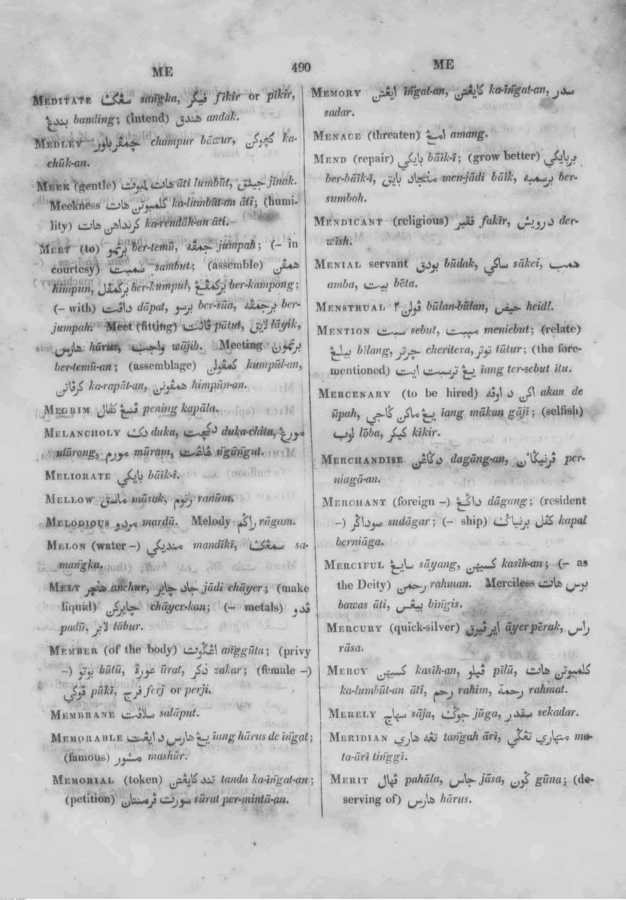 ME 490 ME
MEDITATE سڠكت sangka, فيكر fikir or pikir,
بندڠ banding; (intend) هندق andak.
MEDLEY چمڤرباور champur bāwur, كچوكن ka-
chūk-an.
MEEK (gentle) هات لمبوت āti lumbūt, جينق jīnak.
Meekness كلمبوتن هات ka-lumbūt-an āti; (humi-
lity) كرنداهن هات ka-rendāk-an āti.
MEET (to) برتمو ber-temū, جمڤه jumpah; (– in
courtesy) سمبت sambut; (assemble) همڤن
himpun, بركمڤل ber-kumpul, بركمڤڠ ber-kampong;
(– with) داڤت dāpat, برسو ber-sūa, برجمڤه ber-
jumpah. Meet (fitting) ڤاتت pātut, لايق lāyik,
هارس hārus, واجب wājib. Meeting برتمون
ber-temū-an; (assemblage) كمڤولن kumpūl-an,
كرڤاتن ka-rapāt-an, همڤونن himpūn-an.
MEGRIM ڤنيڠ كڤال pening kapāla.
MELANCHOLY دك duka, دكچيت duka-chita, مورڠ
mūrong, مورم mūram,
MELIORATE بايكي bāik-ī.
MELLOW ماسق māsak, رنوم ranūm.
MELODIOUS مردو mardū. Melody راڬم rāgam.
MELON (water –) منديكي mandīkī, سمڠك sa-
mangka.
MELT هنچر anchur, جاد چاير jādi chāyer; (make
liquid) چايركن chāyer-kan; (– metals) ڤدو
padū, لابر lābur.
MEMBER (of the body) اڠݢوت anggūta; (privy
–) بوتو būtū, عورة ūrat, ذكر zakar; (female –)
ڤوكي pūki, فرج ferj or perji.
MEMBRANE سلاڤت salāput.
MEMORABLE يڠ هارس د ايڠت iang hārus de ingat;
(famous) مشور mashūr.
MEMORIAL (token) تند كايڠتن tanda ka-ingat-an;
(petition) سورت ڤرمنتان sūrat per-mintā-an.
MEMORY ايڠتن ingat-an, كايڠتن ka-ingat-an, سدر
sadar.
MENACE (threaten) امڠ amang.
MEND (repair) بايكي bāik-ī; (grow better) بربايكي
ber-bāik-ī, منجاد بايق men-jādi bāik, برسمبه ber-
sumboh.
MENDICANT (religious) فقير fakīr, درويش der-
wīsh.
MENIAL servant بودق būdak, ساكي sākei, همب
amba, بيت bēta.
MENSTRUAL بولن٢ būlan-būlan, حيض heidl.
MENTION سبت sebut, مبت meniebut; (relate)
بيلڠ bīlang, چرتر cheritera, توتر tūtur; (the fore-
mentioned) يڠ ترسبت ايت iang ter-sebut itu.
MERCENARY (to be hired) اكن د اوڤه akan de
ūpah, يڠ ماكن ݢاجي iang mākan gāji; (selfish)
لوب lōba, كيكر kikir.
MERCHANDISE دݢاڠن dagāng-an, ڤرنيݢان per-
niagā-an.
MERCHANT (foreign –) داݢڠ dāgang; (resident
–) سوداݢر sudāgar; (– ship) كڤل برنياݢ kapal
berniāga.
MERCIFUL سايڠ sāyang, كسيهن kasīh-an; (– as
the Deity) رحمن rahman. Merciless بوس هات
bawas āti, بيڠس bingis.
MERCURY (quick-silver) اير ڤيرق āyer pērak, راس
rāsa.
MERCY كسيهن kasīh-an, ڤيلو pīlū, كلمبوتن هات
ka-lumbūt-an āti, رحم rahim, رحمة rahmat.
MERELY سهاج sāja, جوݢ jūga, سقدر sekadar.
MERIDIAN تڠه هاري tangah āri, متهاري تڠݢي ma-
ta-āri tinggi.
MERIT ڤهال pahāla, جاس jāsa, ݢون gūna; (de-
serving of) هارس hārus.